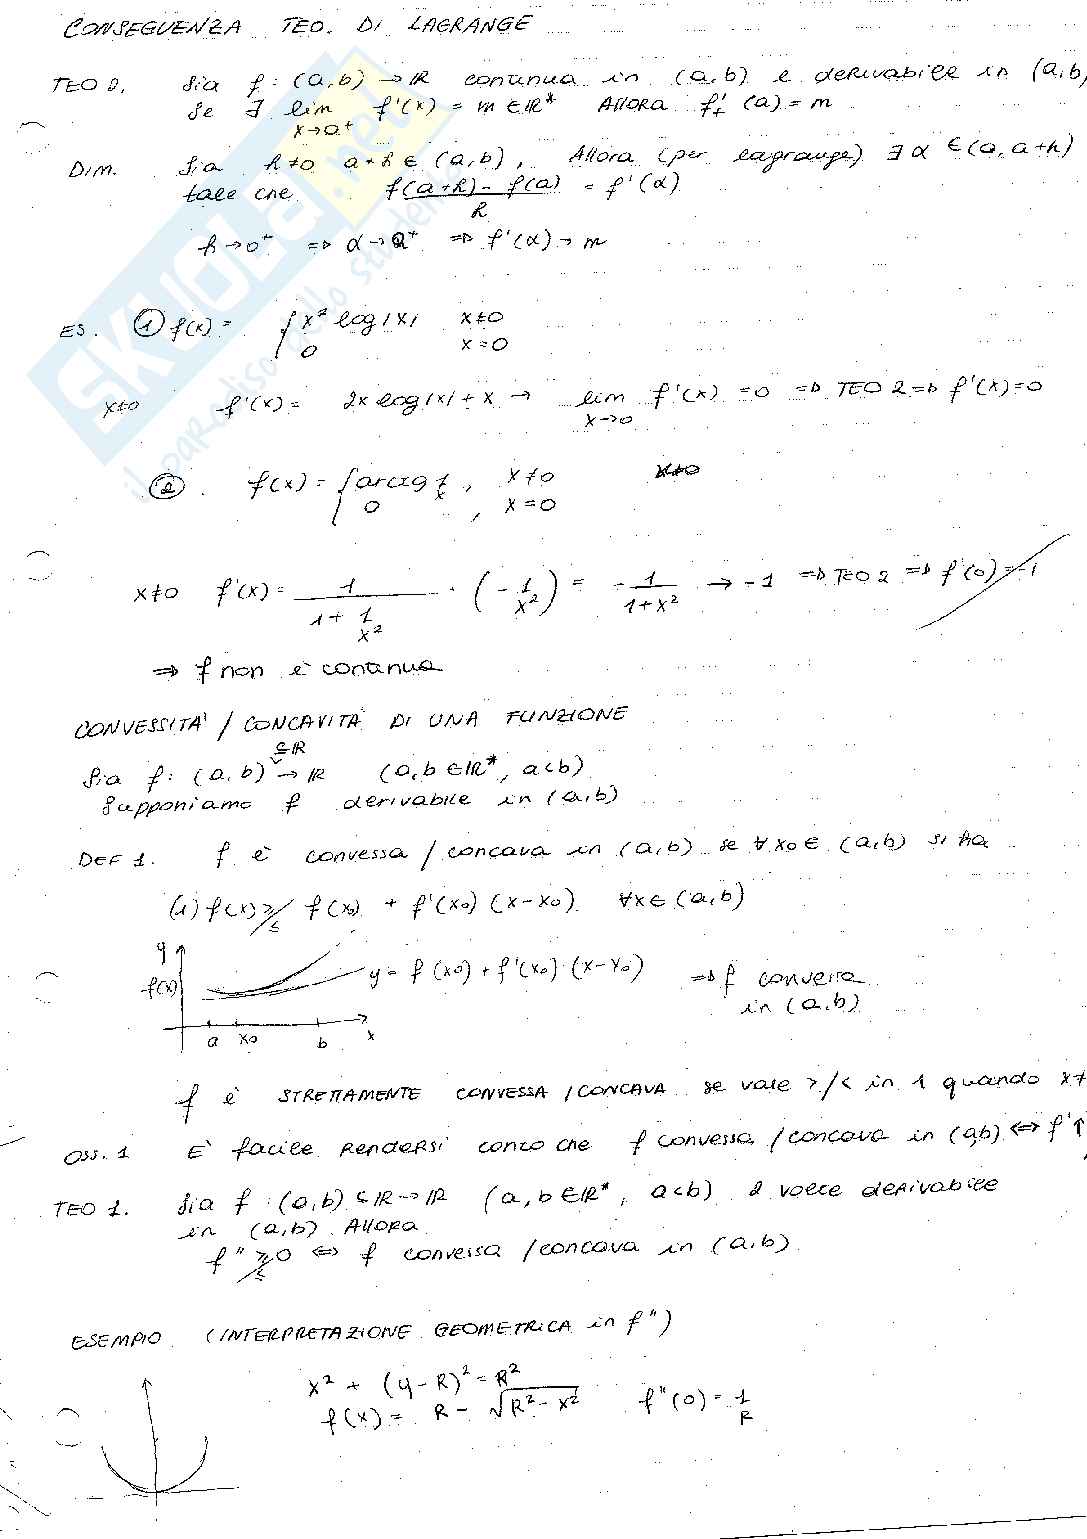 CONSEGUENZA TEO. DI LAGRANGE
TEO 2. Sia f: (a,b) → ℝ continua in (a,b) e derivabile in (a,b
Se ∃ lim f'(x) = m ∈ ℝ* Allora f'₊(a) = m
x→a⁺
Dim. Sia h≠0 a+h ∈ (a,b), Allora (per lagrange) ∃ α ∈ (a, a+h)
tale che f(a+h) - f(a) / h = f'(α)
h→0⁺ ⇒ α→a⁺ ⇒ f'(α) → m
ES. ① f(x) = { x² log|x| x≠0
0 x=0
x≠0 f'(x) = 2x log|x| + x → lim f'(x) = 0 ⇒ TEO 2 ⇒ f'(x)=0
x→0
② f(x) = { arctg 1/x, x≠0
0, x=0
x≠0 f'(x) = 1/(1+1/x²) · (-1/x²) = -1/(1+x²) → -1 ⇒ TEO 2 ⇒ f'(0)=-1
⇒ f non è continua
CONVESSITA' / CONCAVITÀ DI UNA FUNZIONE
Sia f: (a,b) ⊆ℝ → ℝ (a,b ∈ ℝ*, a<b)
Supponiamo f derivabile in (a,b)
DEF 1. f è convessa / concava in (a,b) se ∀ x₀ ∈ (a,b) si ha
(1) f(x) ≥/≤ f(x₀) + f'(x₀) (x-x₀) ∀x ∈ (a,b)
y
f(x) y = f(x₀) + f'(x₀)·(x-x₀) ⇒ f convessa
in (a,b)
a x₀ b x
f è STRETTAMENTE CONVESSA / CONCAVA se vale >/< in 1 quando x≠
OSS. 1 E' facile rendersi conto che f convessa / concava in (a,b) ⇔ f'↑
TEO 1. Sia f: (a,b) ⊆ ℝ → ℝ (a,b ∈ ℝ*, a<b) 2 volte derivabile
in (a,b). Allora
f'' ≥/≤ 0 ⇔ f convessa / concava in (a,b)
ESEMPIO (INTERPRETAZIONE GEOMETRICA in f'')
x² + (y-R)² = R²
f(x) = R - √(R²-x²) f''(0) = 1/R
skuola.net
il paradiso dello studente